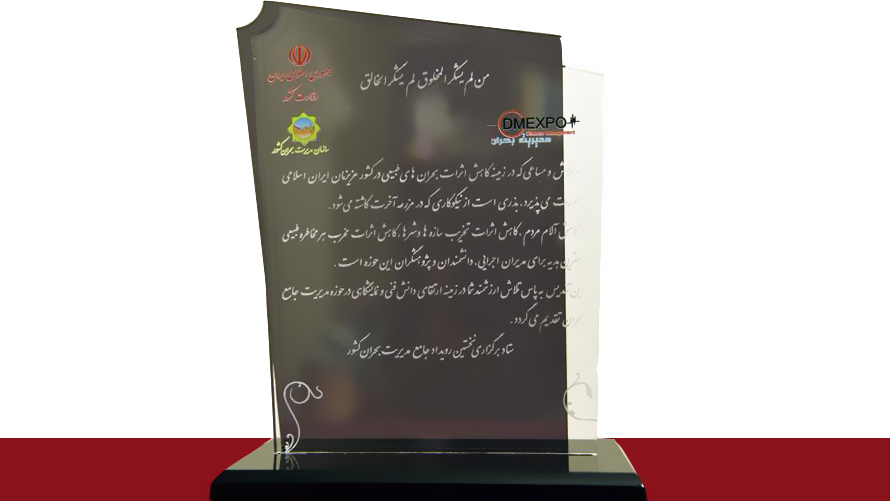 جمهوری اسلامی ایران
وزارت کشور
من لم یشکر المخلوق لم یشکر الخالق
سازمان مدیریت بحران کشور
DMEXPO
Disaster Management
مدیریت بحران
و مساعی که در زمینه کاهش اثرات بحران های طبیعی در کشور عزیزمان ایران اسلامی
صورت می پذیرد، بذری است از نیکوکاری که در مزرعه آخرت کاشته می شود.
کاهش آلام مردم، کاهش اثرات تخریب سازه ها و شهرها، کاهش اثرات مخرب هر مخاطره طبیعی
بهترین هدیه برای مدیران اجرایی، دانشمندان و پژوهشگران این حوزه است.
این تندیس به پاس تلاش ارزشمند شما در زمینه ارتقای دانش فنی و نمایشگاهی در حوزه مدیریت جامع
بحران تقدیم می گردد.
ستاد برگزاری نخستین رویداد جامع مدیریت بحران کشور